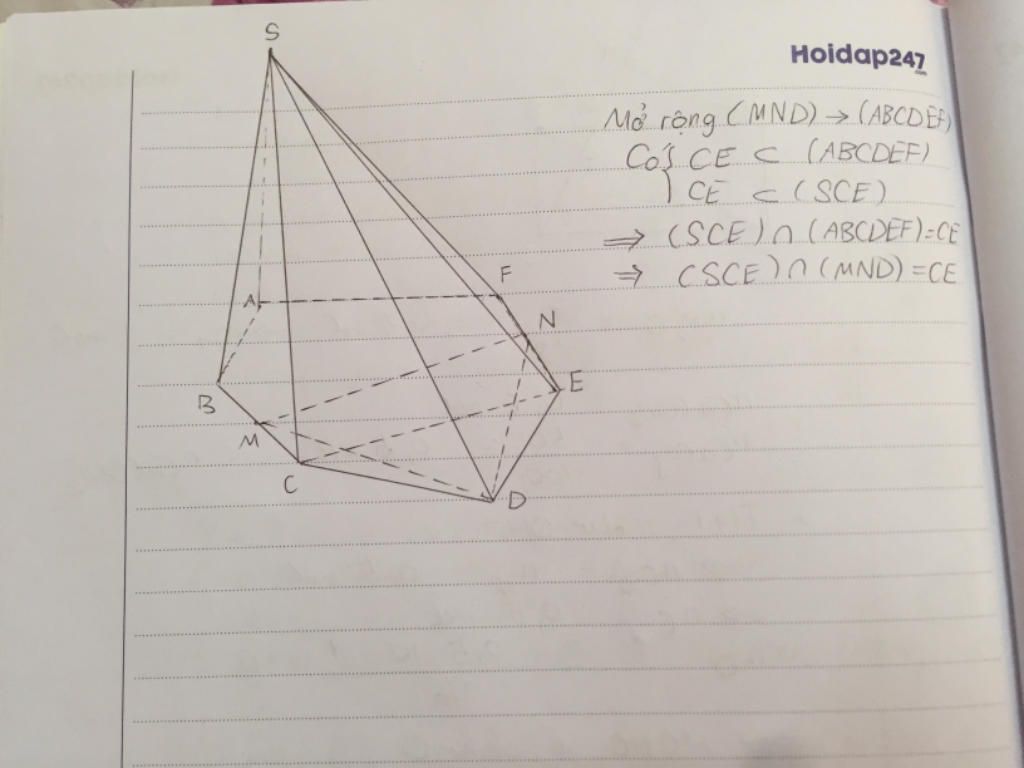 S
Hoidap247
.com
Mở rộng (MND) → (ABCDEF)
Có { CE ⊂ (ABCDEF)
CE ⊂ (SCE)
⇒ (SCE) ∩ (ABCDEF) = CE
⇒ (SCE) ∩ (MND) = CE
F
A
N
E
B
M
C
D